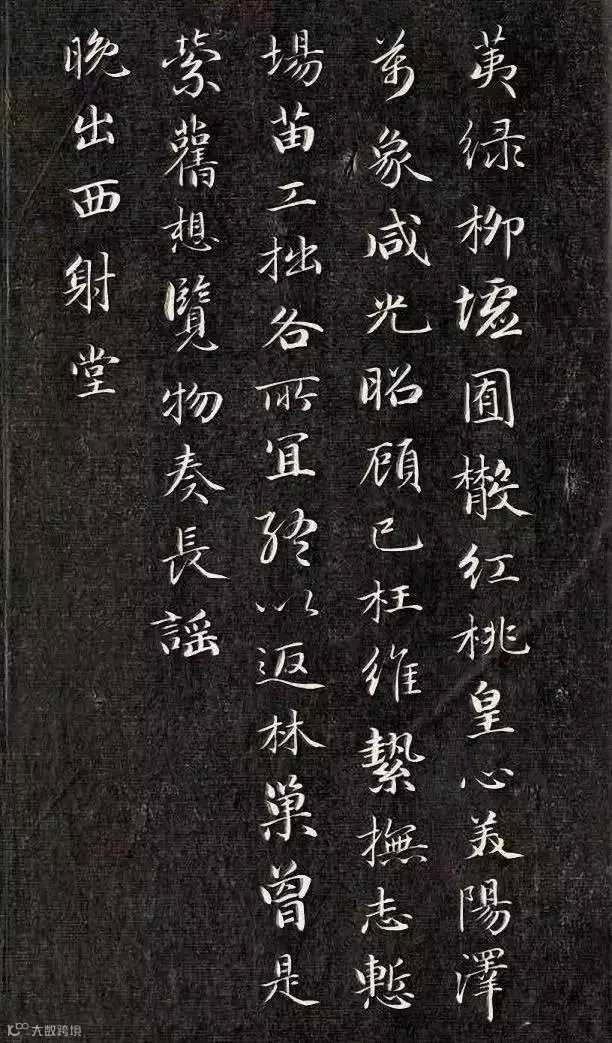 荑绿柳墟囿散红桃皇心美陽澤
萬象咸光昭顾已枉維縶撫志慙
場苗工拙各所宜終以返林巢曾是
縈舊想覽物奏長謡
晚出西射堂
大数跨境